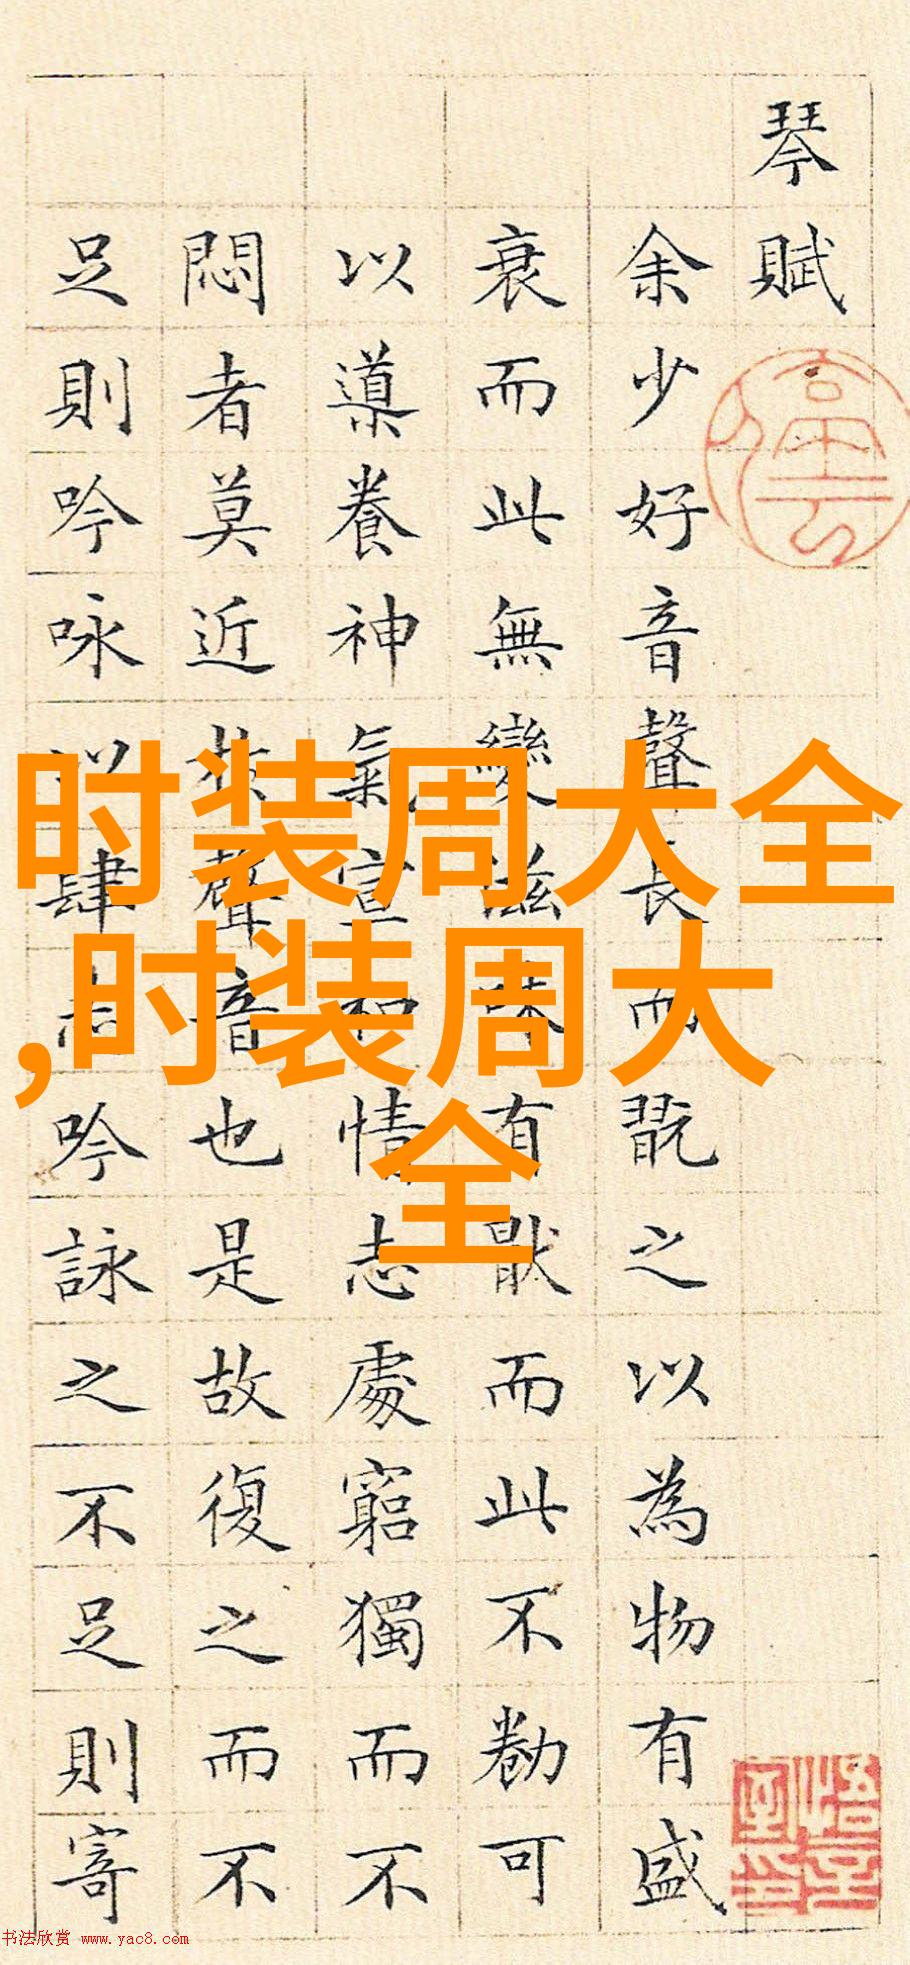 琴賦
余少好音聲長而翫之以為物有盛
衰而此無變滋味有猒而此不勌可
以導養神氣宣和情志處窮獨而不
悶者莫近於聲音也是故復之而不
足則吟咏以肆志吟詠之不足則寄
时装周大全
,时装周大
全
书法欣赏 www.yac8.com